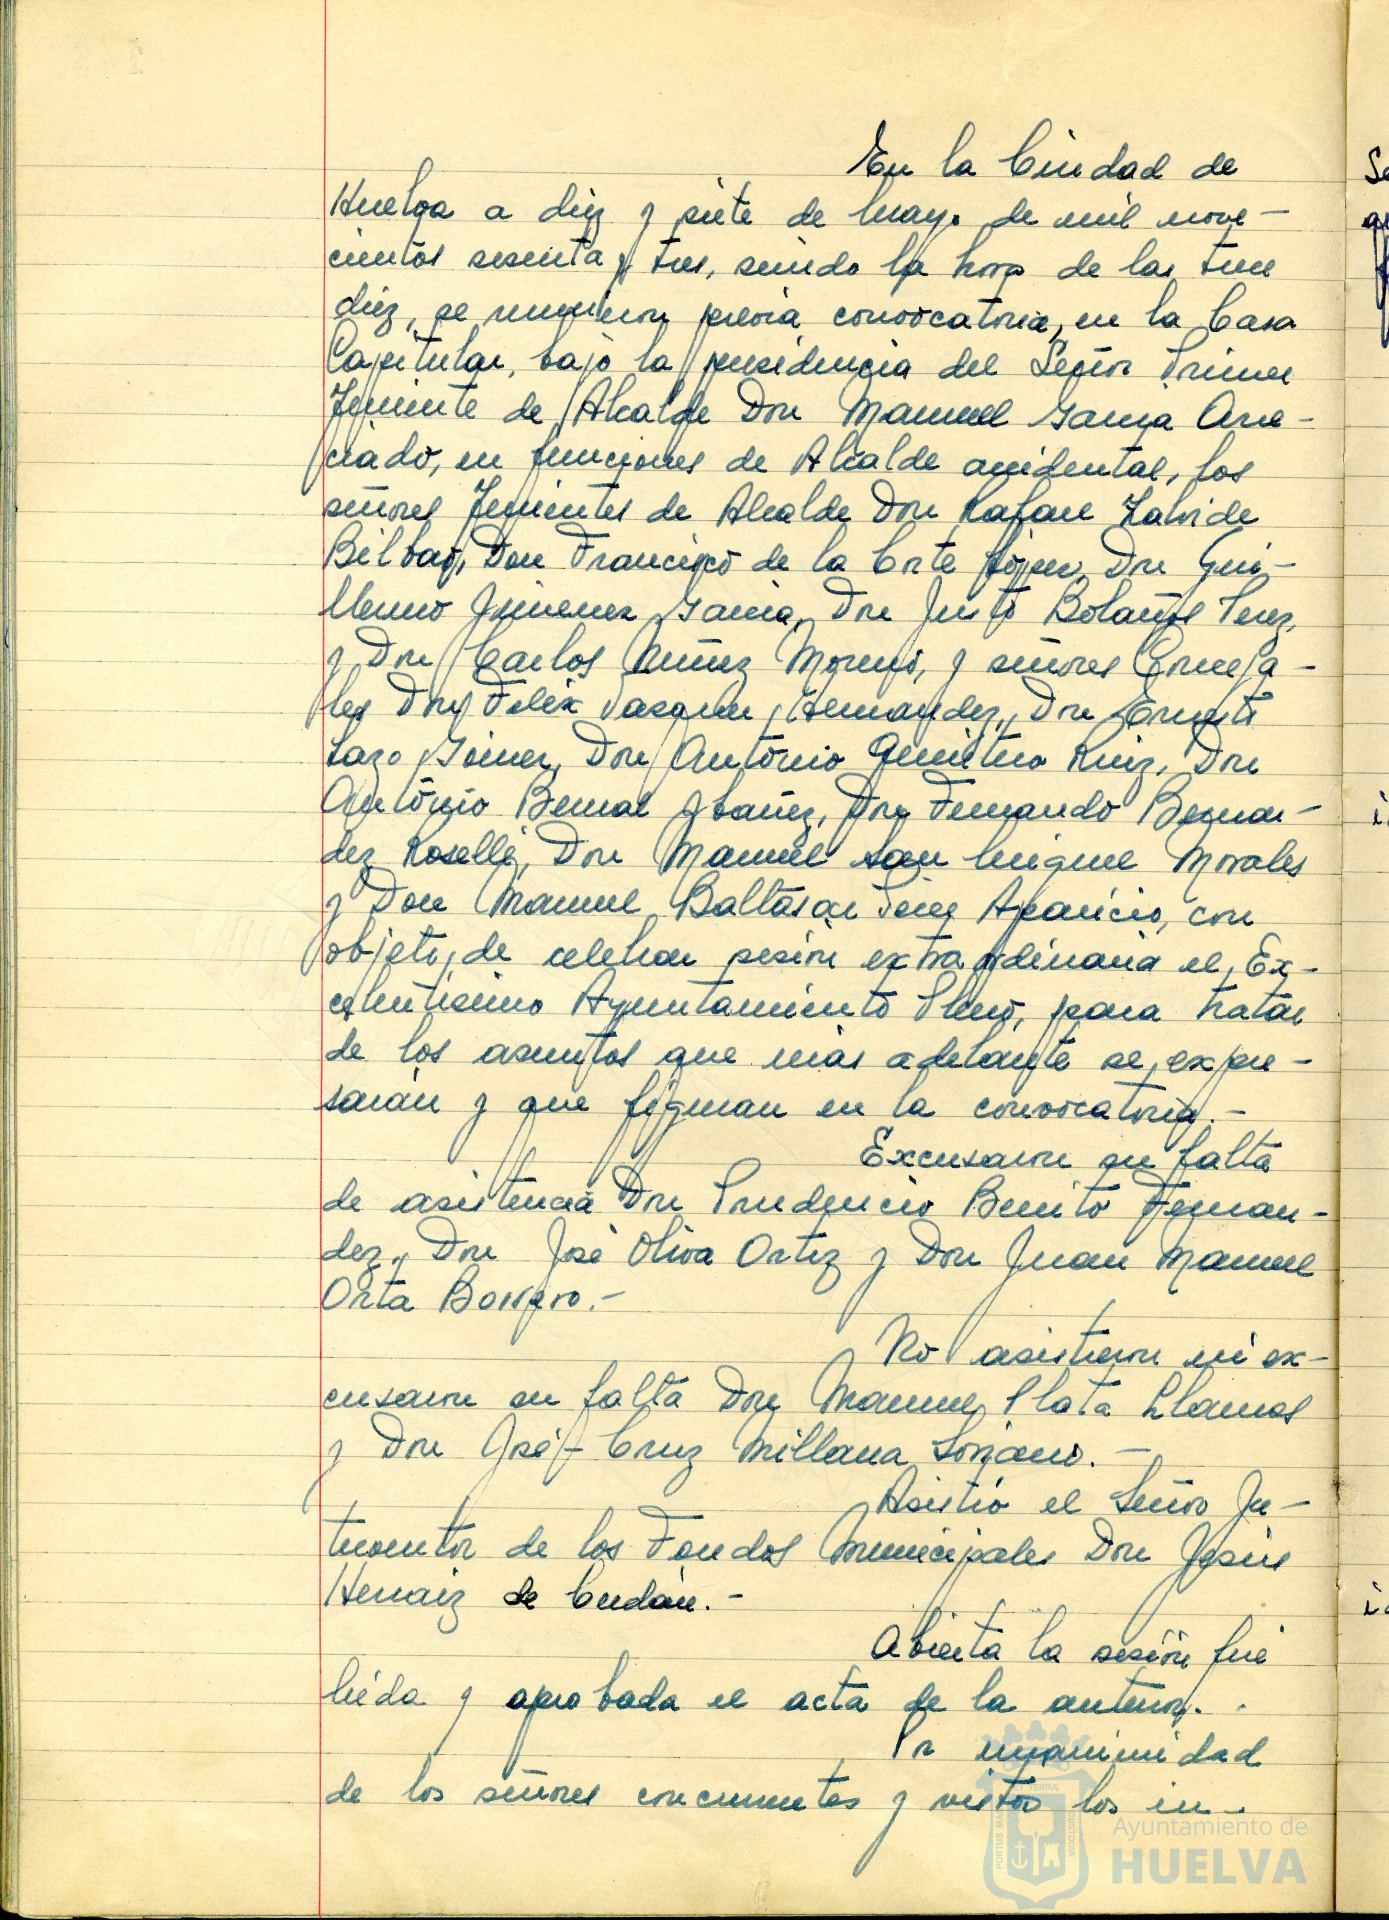 En la Ciudad de
Huelva a diez y siete de Mayo de mil nove-
cientos sesenta y tres, siendo la hora de las trece
diez, se reunieron previa convocatoria, en la Casa
Capitular, bajo la presidencia del Señor Primer
Teniente de Alcalde Don Manuel Garcia Arre-
ciado, en funciones de Alcalde accidental, los
señores Tenientes de Alcalde Don Rafael Zalvide
Bilbao, Don Francisco de la Corte López, Don Gui-
llermo Jimenez Garcia, Don Justo Bolaños Perez,
y Don Carlos Nuñez Moreno, y señores Conceja-
les Don Felix Vazquez Hernandez, Don Ernesto
Lazo Don Antonio Quintero Ruiz, Don
Antonio Bernal Ybañez, Don Fernando Bernar-
dez Roselló, Don Manuel San Miguel Morales
y Don Manuel Baltasar Aparicio, con
objeto de celebrar sesión extraordinaria el Ex-
celentisimo Ayuntamiento Pleno, para tratar
de los asuntos que más adelante se expre-
sarán y que figuran en la convocatoria.-
Excusaron su falta
de asistencia Don Prudencio Benito Fernan-
dez, Don José Oliva Ortiz y Don Juan Manuel
Orta Borrero.-
No asistieron ni ex-
cusaron su falta Don Manuel Plata Llamas
y Don José-Cruz Millana Lorzano.-
Asistió el Señor In-
terventor de los Fondos Municipales Don Jesús
Hernaiz de Cerdán.-
Abierta la sesión fué
leída y aprobada el acta de la anterior.
Por unanimidad
de los señores concurrentes y vistos los in-
PORTUS MARIS TERRAE CUSTODIA
Ayuntamiento de
HUELVA